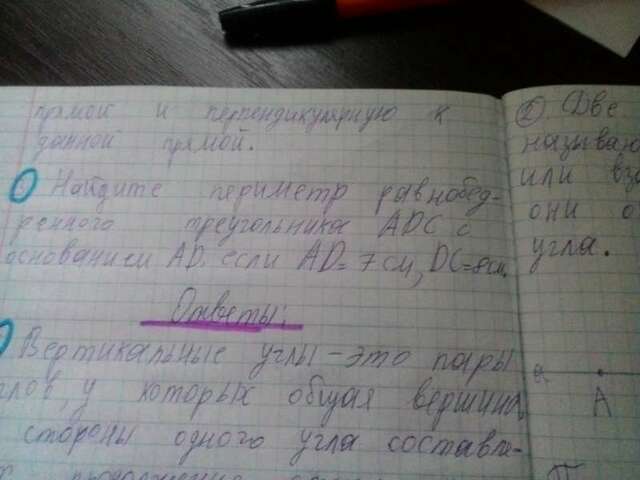 прямой и перпендикулярную к
данной прямой.
Найдите периметр равнобед-
ренного треугольника ADC с
основанием AD, если AD = 7 см, DC = 8 см,
Ответы:
Вертикальные углы - это пары
углов, у которых общая вершина
стороны одного угла составля-
② Две
или
они
угла.
a
A